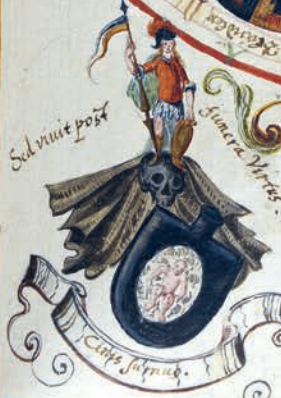 Sed viuit post
funera Virtus.
Cinis sumus.